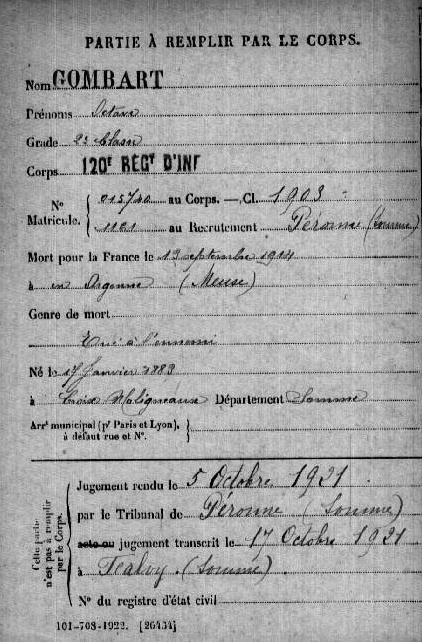 PARTIE À REMPLIR PAR LE CORPS.
Nom GOMBART
Prénoms Octave
Grade 2e Classe
Corps 120e REGt D'INF
N° Matricule. { 015740 au Corps. — Cl. 1903
1121 au Recrutement Péronne (Somme)
Mort pour la France le 13 septembre 1914
à en Argonne (Meuse)
Genre de mort
Tué à l'ennemi
Né le 17 Janvier 1883
à Croix Moligneaux Département Somme
Arrt municipal (pr Paris et Lyon), à défaut rue et N°. }
Cette partie n'est pas à remplir par le Corps.
Jugement rendu le 5 Octobre 1921
par le Tribunal de Péronne (Somme)
acte ou jugement transcrit le 17 Octobre 1921
à (Somme)
N° du registre d'état civil
101-708-1922. [26434]